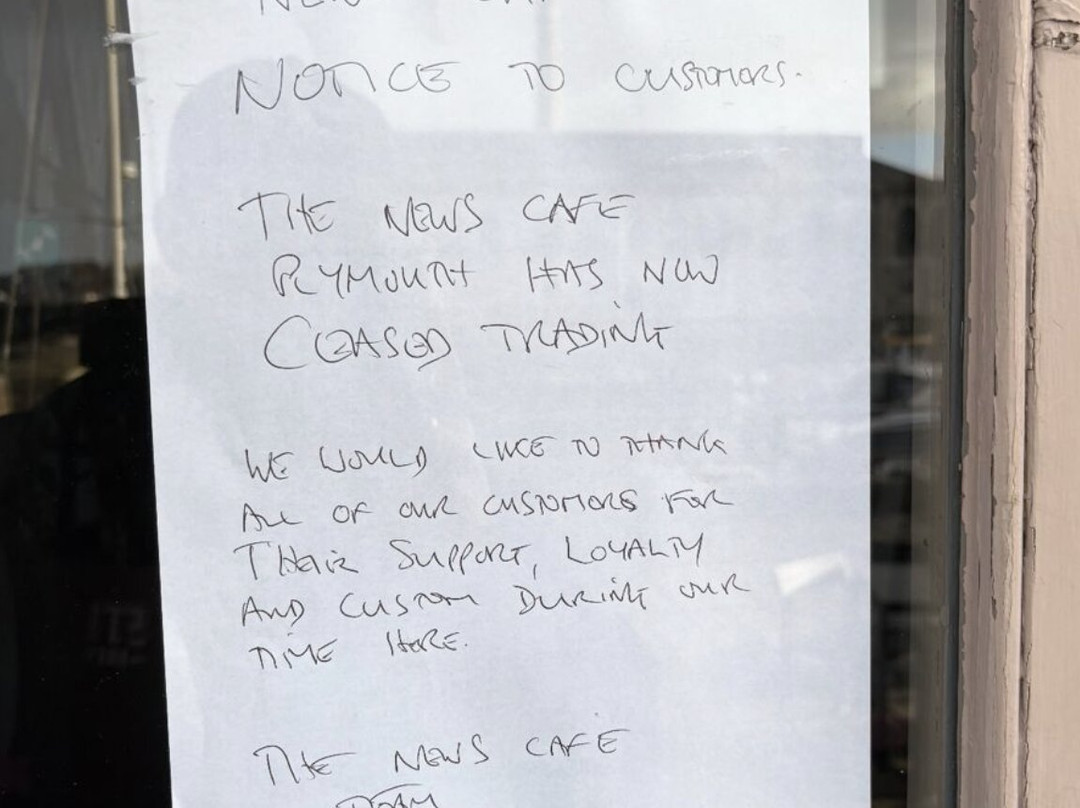 NOTICE TO CUSTOMERS.
THE NEWS CAFE
PLYMOUTH HAS NOW
CEASED TRADING
WE WOULD LIKE TO THANK
ALL OF OUR CUSTOMERS FOR
THEIR SUPPORT, LOYALTY
AND CUSTOM DURING OUR
TIME HERE.
THE NEWS CAFE
TEAM